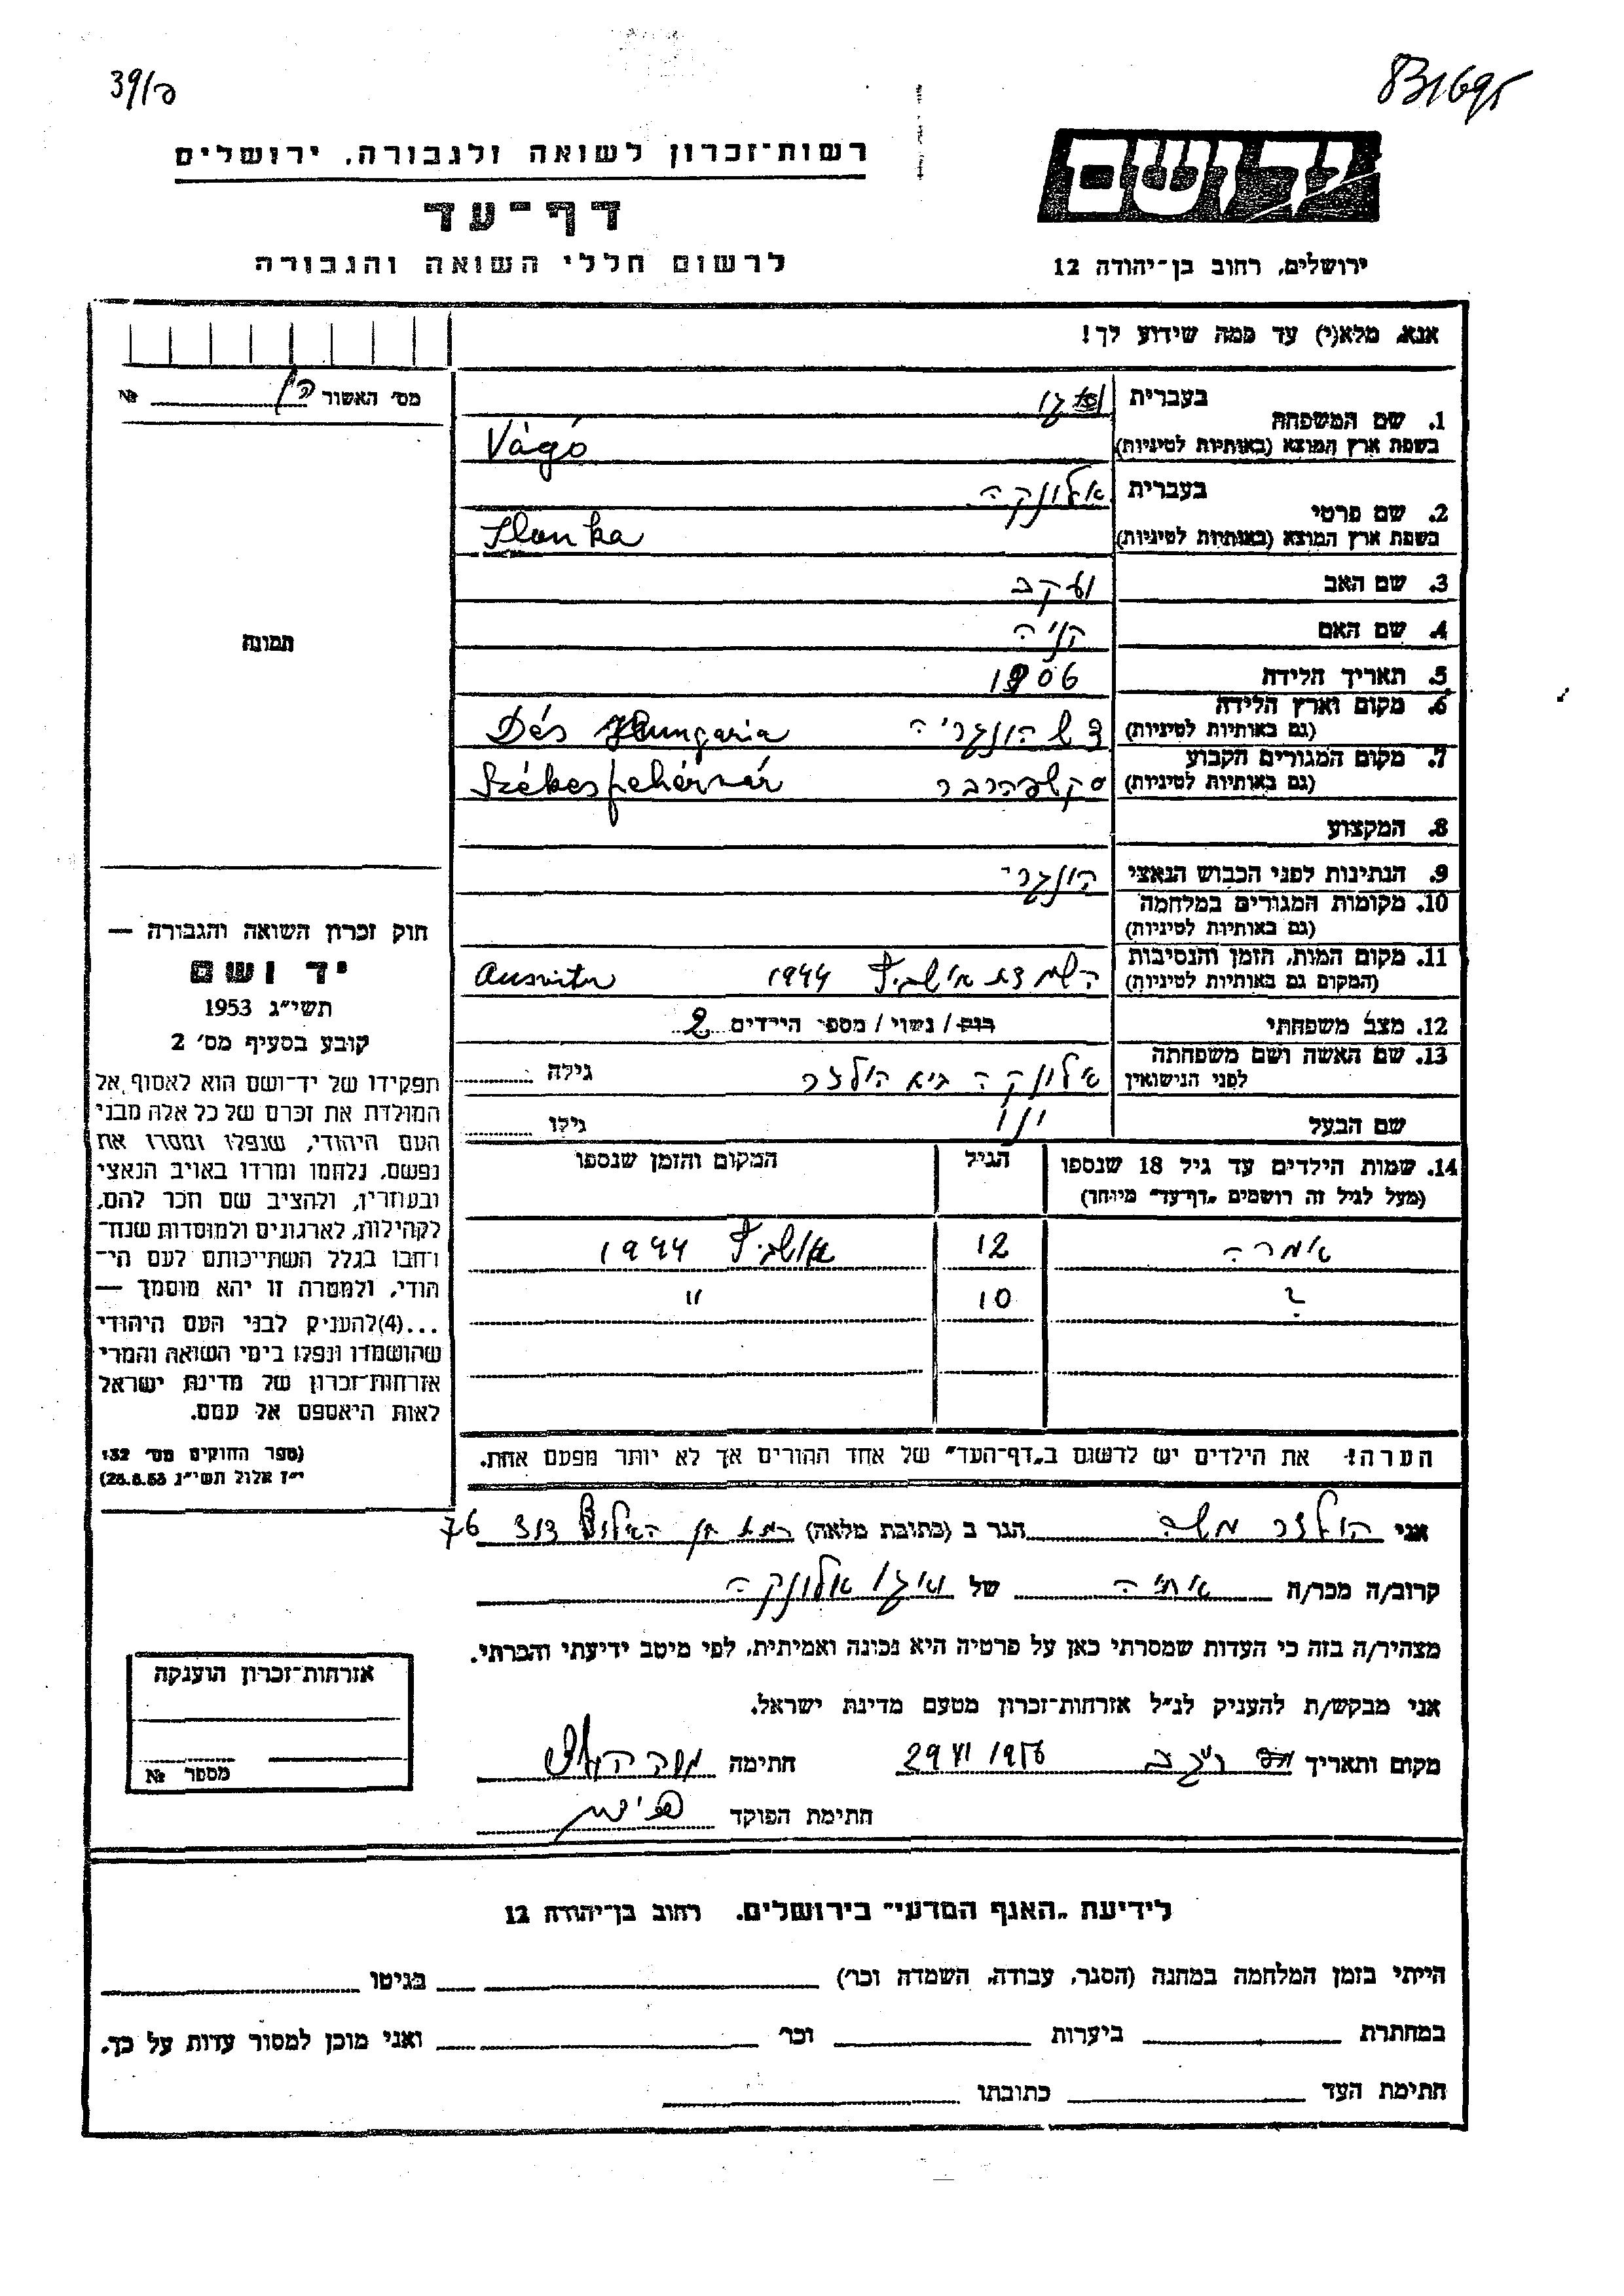 39/ק
831695
רשות־זכרון לשואה ולגבורה, ירושלים
דף־עד
לרשום חללי השואה והגבורה
יד ושם
ירושלים, רחוב בן־יהודה 12
אנא, מלא(י) עד כמה שידוע לך!
מס׳ האשור № 
בעברית ואגו
1. שם המשפחה
בשפת ארץ המוצא (באותיות לטיניות) Vágó
בעברית אילונקה
2. שם פרטי
בשפת ארץ המוצא (באותיות לטיניות) Ilonka
3. שם האב יעקב
4. שם האם
תמונה
5. תאריך הלידה 1906
6. מקום וארץ הלידה
(גם באותיות לטיניות) דש הונגריה Dés Hungaria
7. מקום המגורים הקבוע
(גם באותיות לטיניות) סקשפהרבר Székesfehérvár
8. המקצוע
9. הנתינות לפני הכבוש הנאצי הונגרי
10. מקומות המגורים במלחמה
(גם באותיות לטיניות)
11. מקום המות, הזמן והנסיבות
(המקום גם באותיות לטיניות) השמדה אושביץ 1944 Ausvitz
12. מצב משפחתי רוק / נשוי / מספר הילדים 2
13. שם האשה ושם משפחתה
לפני הנישואין אילונקה הולצר גילה
שם הבעל ינו גילו
14. שמות הילדים עד גיל 18 שנספו
(מעל לגיל זה רושמים „דף־עד״ מיוחד)
הגיל
המקום והזמן שנספו
אימרה 12 אושביץ 1944
? 10 "
הערה: את הילדים יש לרשום ב„דף־העד״ של אחד ההורים אך לא יותר מפעם אחת.
חוק זכרון השואה והגבורה —
יד ושם
תשי״ג 1953
קובע בסעיף מס׳ 2
תפקידו של יד־ושם הוא לאסוף אל
המולדת את זכרם של כל אלה מבני
העם היהודי, שנפלו ומסרו את
נפשם, נלחמו ומרדו באויב הנאצי
ובעוזריו, ולהציב שם וזכר להם,
לקהילות, לארגונים ולמוסדות שנח־
רבו בגלל השתייכותם לעם הי־
הודי, ולמטרה זו יהא מוסמך —
...(4)להעניק לבני העם היהודי
שהושמדו ונפלו בימי השואה והמרי
אזרחות־זכרון של מדינת ישראל
לאות היאספם אל עמם.
(ספר החוקים מס׳ 132
י״ז אלול תשי״ג 28.8.53)
אני הולצר משה הגר ב (כתובת מלאה) רמת גן 76
קרוב/ה מכר/ה אחיה של ואגו אילונקה
מצהיר/ה בזה כי העדות שמסרתי כאן על פרטיה היא נכונה ואמיתית, לפי מיטב ידיעתי והכרתי.
אני מבקש/ת להעניק לנ״ל אזרחות־זכרון מטעם מדינת ישראל.
מקום ותאריך 29 VI 1956 חתימה משה
חתימת הפוקד
אזרחות־זכרון הוענקה
מספר №
לידיעת „האגף המדעי״ בירושלים. רחוב בן־יהודה 12
הייתי בזמן המלחמה במחנה (הסגר, עבודה, השמדה וכר׳) בגיטו
במחתרת ביערות וכר׳ ואני מוכן למסור עדות על כך.
חתימת העד כתובתו